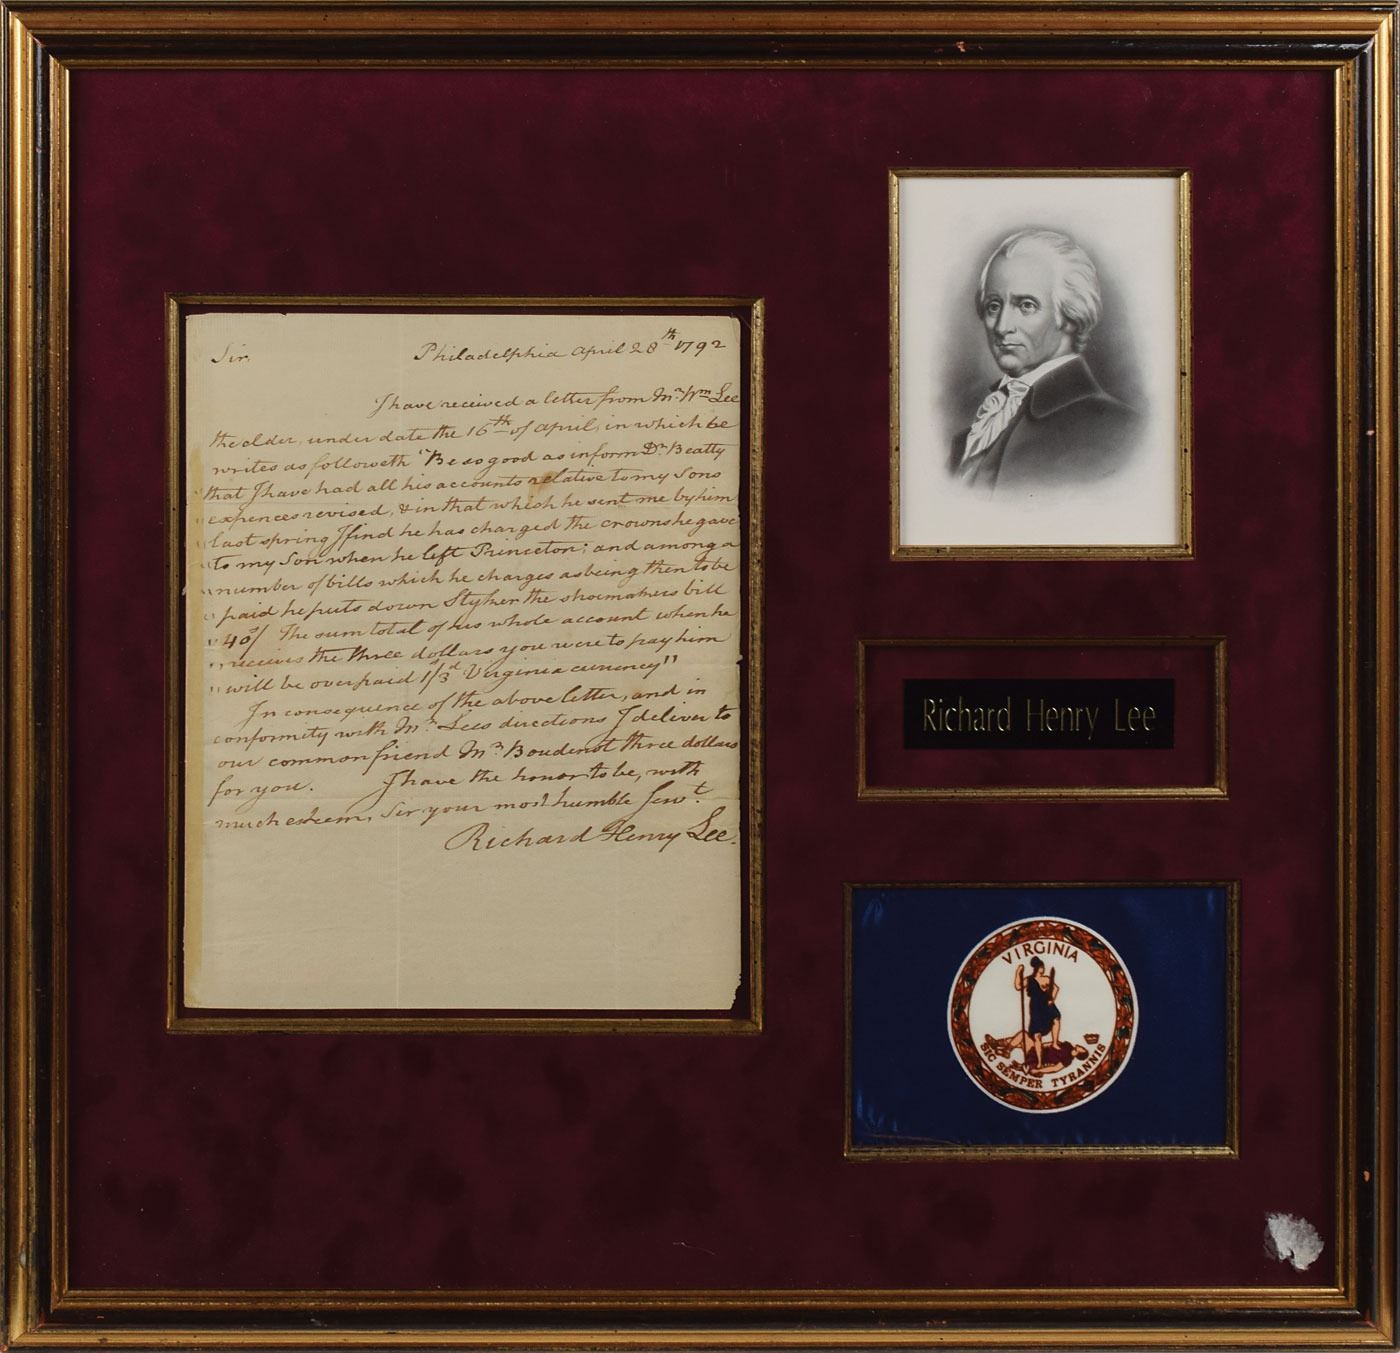 Sir,
Philadelphia april 28th 1792
I have received a letter from Mr Wm Lee
the elder, under date the 16th of april, in which he
writes as followeth "Be so good as inform Dr Beatty
that I have had all his accounts relative to my Sons
expences revised, & in that which he sent me by him
last spring I find he has charged the crowns he gave
to my Son when he left Princeton; and among a
number of bills which he charges as being then to be
paid he puts down Styker the shoemakers bill
40/ The sum total of his whole account when he
receives the three dollars you were to pay him
will be overpaid 1/3d Virginia currency"
In consequence of the above letter, and in
conformity with Mr Lees directions I deliver to
our common friend Mr Boudenot three dollars
for you. I have the honor to be, with
much esteem, Sir your most humble Servt.
Richard Henry Lee.
Richard Henry Lee
VIRGINIA
SIC SEMPER TYRANNIS